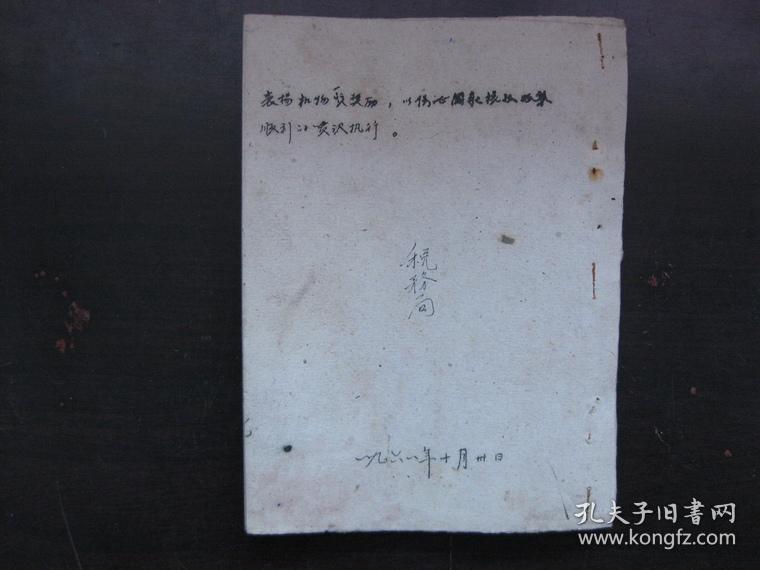 表扬和物质奖励，以保证国家税收政策
顺利的贯沏执行。
税務局
一九六一年十月卅日
孔夫子旧書网
www.kongfz.com